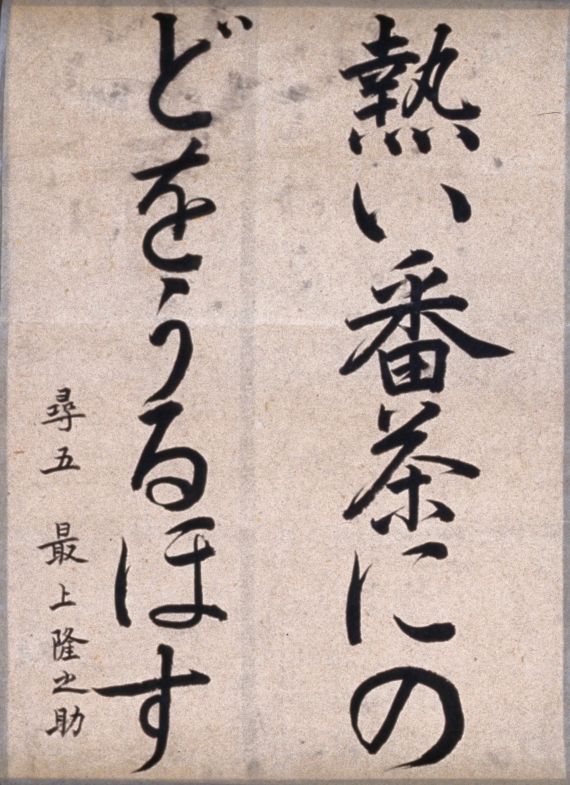 熱い番茶にの
どをうるほす
尋五 最上隆之助